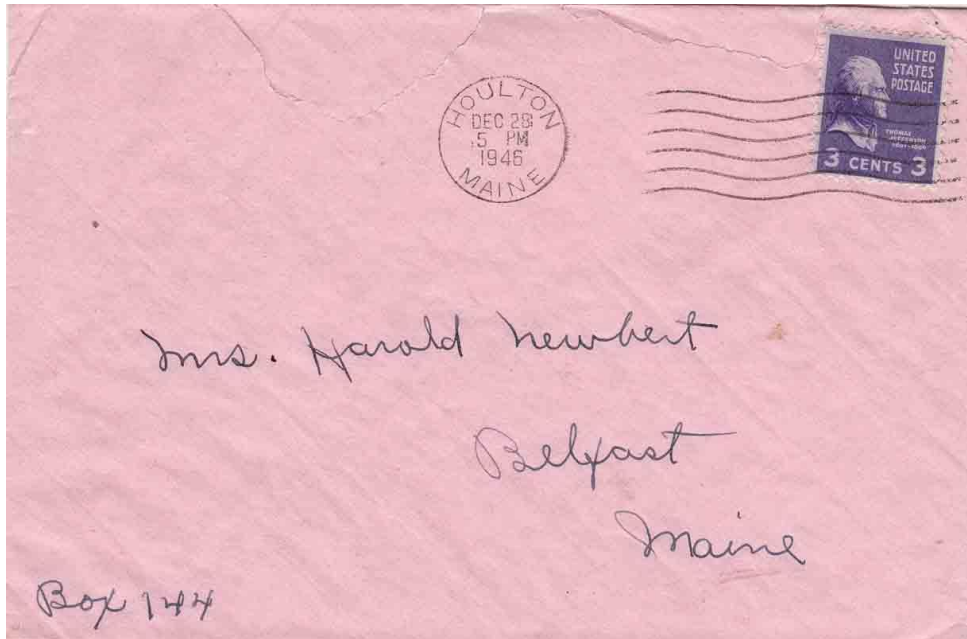 HOULTON
DEC 28
5 PM
1946
MAINE
UNITED
STATES
POSTAGE
THOMAS
JEFFERSON
3 CENTS 3
Mrs. Harold Newbert
Belfast
Maine
Box 144